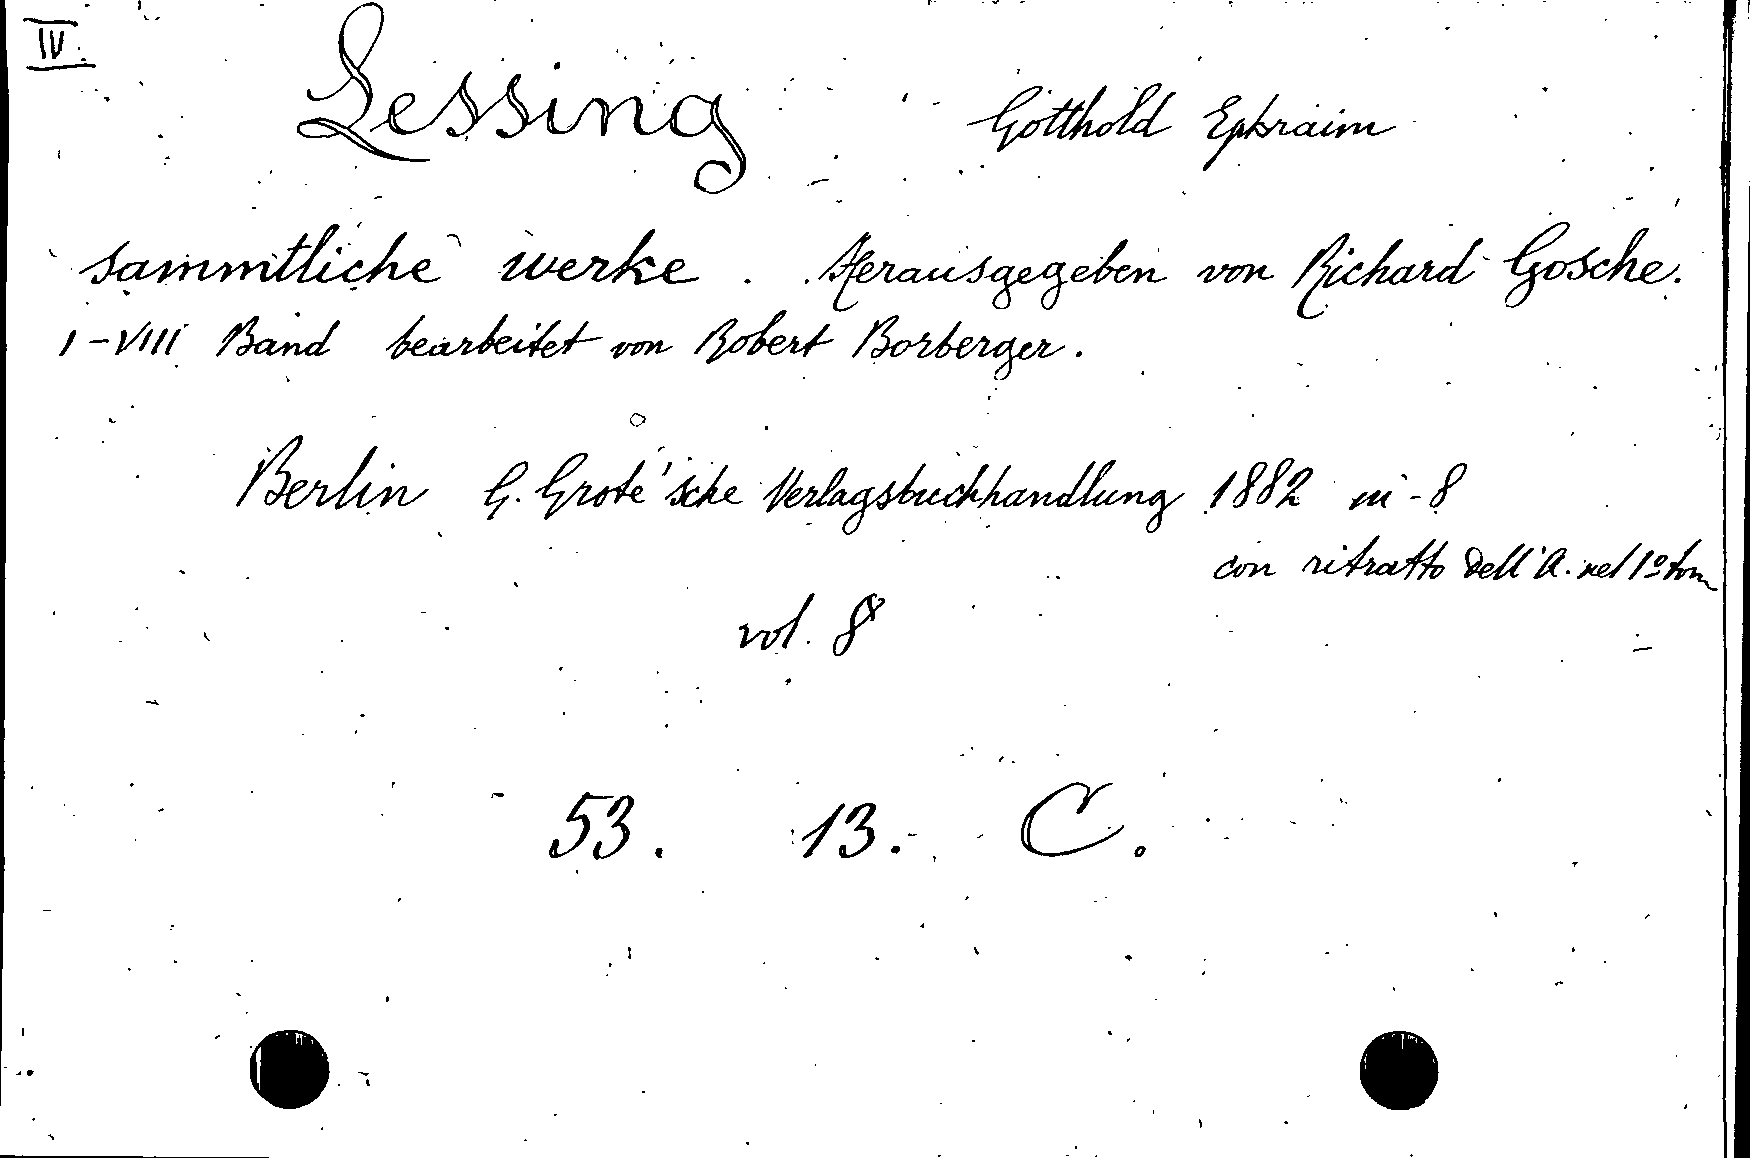 IV.
Lessing Gotthold Ephraim
sammtliche werke. Herausgegeben von Richard Gosche.
I-VIII Band bearbeitet von Robert Borberger.
Berlin G. Grote'sche Verlagsbuchhandlung 1882 in-8
con ritratto dell'A. nel 1º tom
vol. 8
53. 13. C.